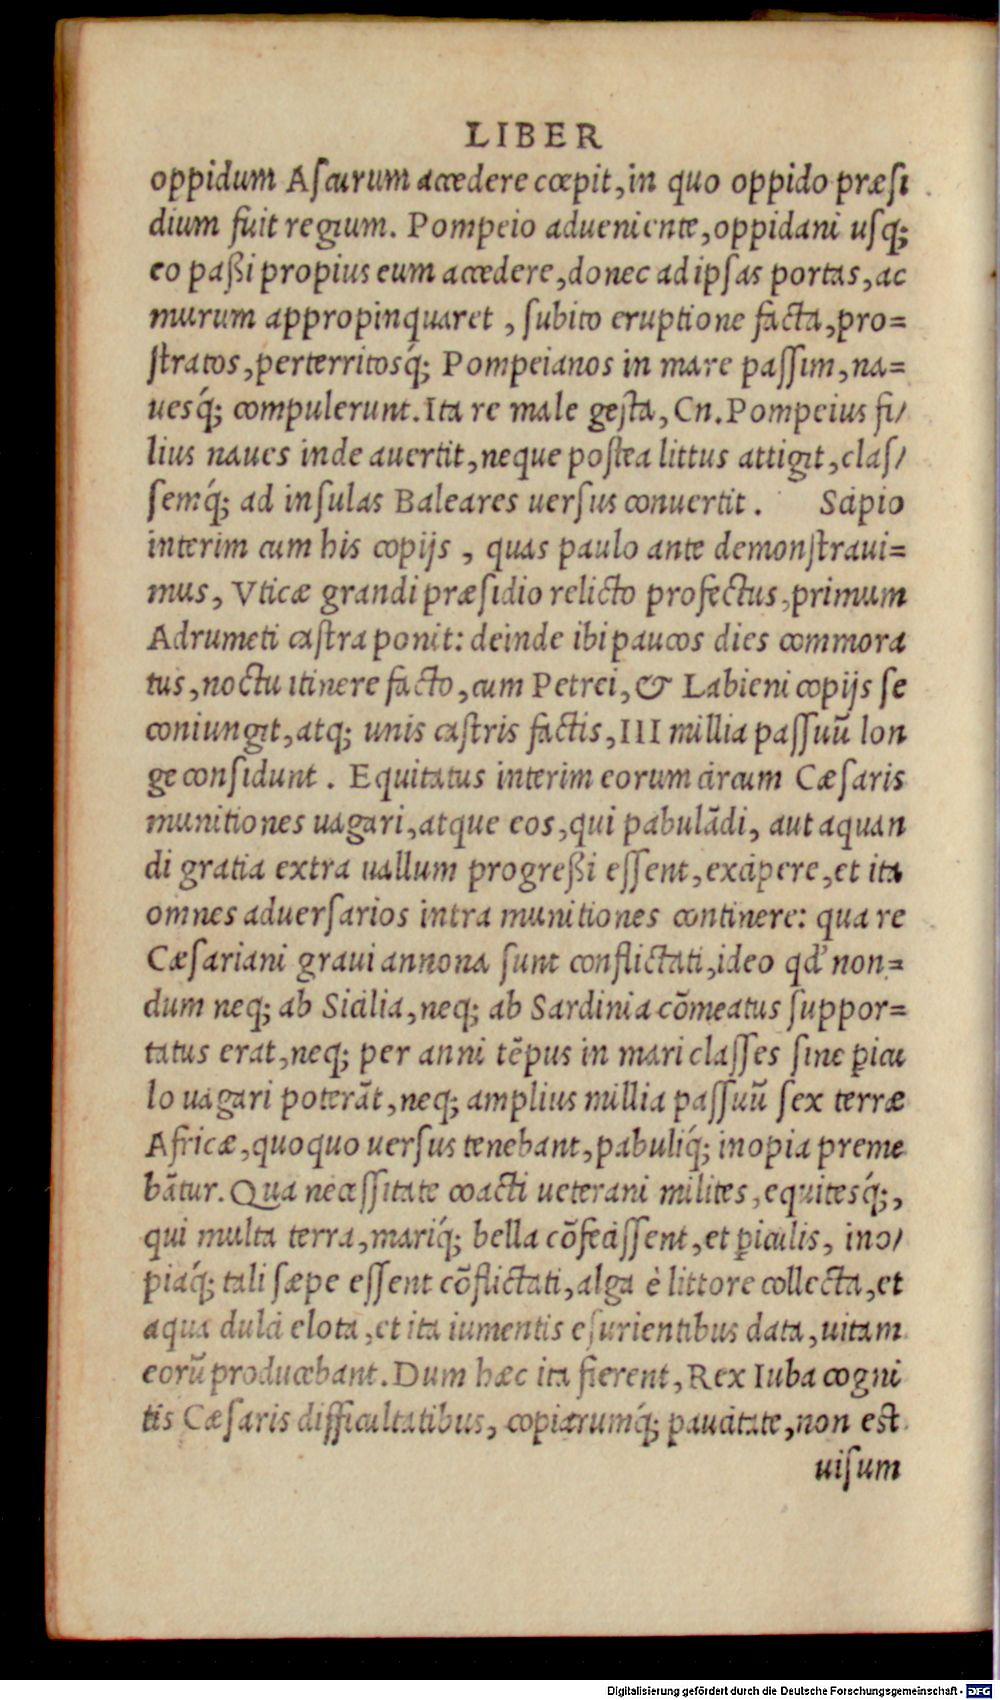 LIBER
oppidum Ascurum accedere cœpit, in quo oppido præsi
dium fuit regium. Pompeio adueniente, oppidani usq;
eo paßi propius eum accedere, donec ad ipsas portas, ac
murum appropinquaret , subito eruptione facta, pro=
stratos, perterritosq́; Pompeianos in mare passim, na=
uesq́; compulerunt. Ita re male gesta, Cn. Pompeius fi/
lius naues inde auertit, neque postea littus attigit, clas/
semq́; ad insulas Baleares uersus conuertit . Scipio
interim cum his copijs , quas paulo ante demonstraui=
mus, Vticæ grandi præsidio relicto profectus, primum
Adrumeti castra ponit: deinde ibi paucos dies commora
tus, noctu itinere facto, cum Petrei, & Labieni copijs se
coniungit, atq; unis castris factis, III millia passuũ lon
ge considunt . Equitatus interim eorum circum Cæsaris
munitiones uagari, atque eos, qui pabulãdi, aut aquan
di gratia extra uallum progreßi essent, excipere, et ita
omnes aduersarios intra munitiones continere: qua re
Cæsariani graui annona sunt conflictati, ideo qd' non=
dum neq; ab Sicilia, neq; ab Sardinia cõmeatus suppor=
tatus erat, neq; per anni tẽpus in mari classes sine ꝑicu
lo uagari poterãt, neq; amplius millia passuũ sex terræ
Africæ, quoquo uersus tenebant, pabuliq́; inopia preme
bãtur. Qua necessitate coacti ueterani milites, equitesq́;,
qui multa terra, mariq́; bella cõfecissent, et ꝑiculis, ino/
piaq́; tali sæpe essent cõflictati, alga è littore collecta, et
aqua dulci elota, et ita iumentis esurientibus data, uitam
eorũ producebant. Dum hæc ita fierent, Rex Iuba cogni
tis Cæsaris difficultatibus, copiarumq́; paucitate, non est
uisum
Digitalisierung gefördert durch die Deutsche Forschungsgemeinschaft - DFG